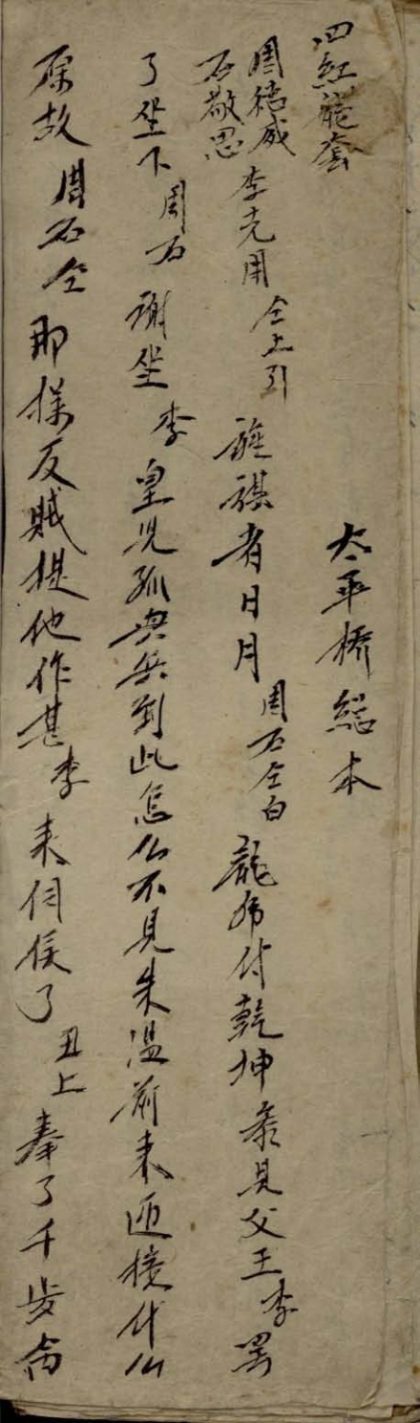 太平橋總本
四紅龍套
周德威 石敬思 李克用 仝上引 旌旗者日月 周石仝白 龍虎付乾坤 叅見父王 李 罢
了坐下 周石 謝坐 李 皇児孤興兵到此怎仏不見朱温前来迎接什仏
原故 周石仝 那樣反賊提他作甚 李 来伺侯了 丑上 奉了千歩命